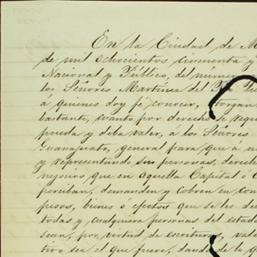 En la Ciudad de M
de mil ochocientos cincuenta y
Nacional y Público, del numer
los Señores Martinez del
á quienes doy fé conozco, otorgan
bastante, cuanto por derecho se requi
pueda y deba valer, a los Señores
Guanajuato, general para que á n
y representando sus personas, derech
negocio que en aquella Capital ó
perciban, demanden y cobren en con
pesos, bienes ó efectos que se les de
todas y cualquiera personas del estado
sean, por virtud de escrituras, vale
tivo sea el que fuere, dando de lo q